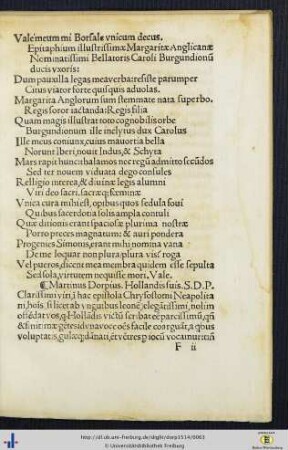 Vale meum mi Borsale vnicum decus.
Epitaphium illustrissimæ Margaritæ Anglicanæ
Neminatissimi Bellatoris Caroli Burgundionū
ducis vxoris:
Dum pauxilla legas meaverba: resiste parumper
Citus viator forte quisquis aduolas.
Margarita Anglorum sum stemmate nata superbo.
Regis soror iactanda: Regis filia
Quam magis illustrat toto cognobilis orbe
Burgundionum ille inclytus dux Carolus
Ille meus coniunx, cuius mauortia bella
Norunt Iberi, nouit Indus, & Schyta
Mars rapit hunc: thalamos nec regū admitto secūdos
Sed ter nouem viduata dego consules
Relligio interea, & diuinæ legis alumni
Viri deo sacri. sacræq; fœminæ
Vnica cura mihi est, opibus quos sedula foui
Quibus sacerdotia solis ampla contuli
Quæ ditionis erant spaciosæ plurima nostræ
Porro preces magnatum: & auri pondera
Progenies Simonis, erant mihi nomina vana
De me loquar non plura: plura vis? roga
Vel pueros, dicent mea membra quidem esse sepulta
Sed sola, virtutem nequisse mori, Vale.
¶ Martinus Dorpius. Hollandis suis. S. D. P.
Clarissimi viri,
F ii
http://dl.ub.uni-freiburg.de/diglit/dorp1514/0063
© Universitätsbibliothek Freiburg